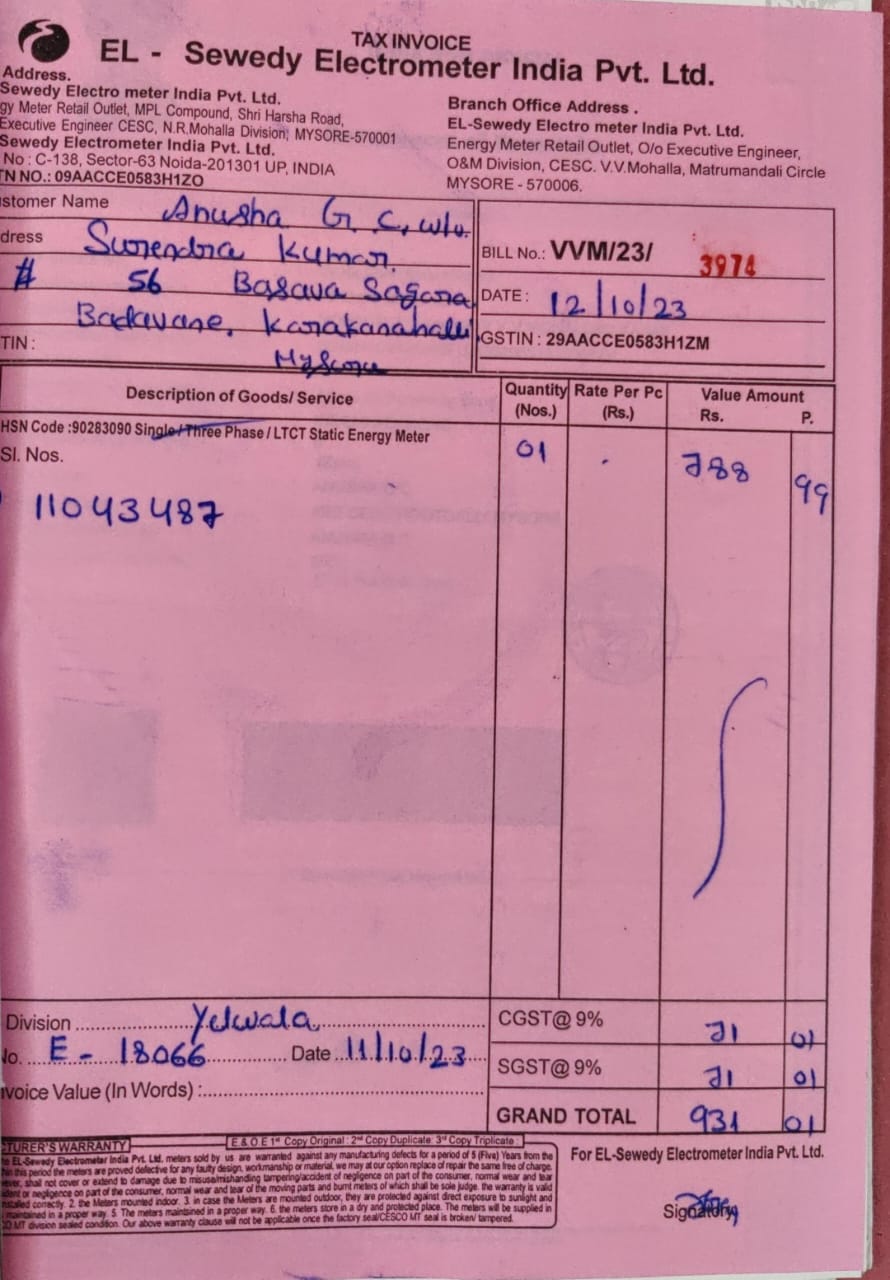 TAX INVOICE
EL - Sewedy Electrometer India Pvt. Ltd.
Address.
Sewedy Electro meter India Pvt. Ltd.
gy Meter Retail Outlet, MPL Compound, Shri Harsha Road,
Executive Engineer CESC, N.R.Mohalla Division, MYSORE-570001
Sewedy Electrometer India Pvt. Ltd.
No : C-138, Sector-63 Noida-201301 UP, INDIA
TN NO.: 09AACCE0583H1ZO
Branch Office Address .
EL-Sewedy Electro meter India Pvt. Ltd.
Energy Meter Retail Outlet, O/o Executive Engineer,
O&M Division, CESC. V.V.Mohalla, Matrumandali Circle
MYSORE - 570006.
stomer Name Anusha G. C, w/o.
dress Surendra Kumar.
# 56 Basava Sagara
Badavane, Karakanahalli
TIN :
Mysore
BILL No.: VVM/23/ 3974
DATE : 12/10/23
GSTIN : 29AACCE0583H1ZM
Description of Goods/ Service Quantity (Nos.) Rate Per Pc (Rs.) Value Amount Rs. P.
HSN Code :90283090 Single / Three Phase / LTCT Static Energy Meter
Sl. Nos. 01 788 99
11043487
Division Yelwala
No. E - 18066 Date 11/10/23
nvoice Value (In Words) :
CGST@ 9% 71 01
SGST@ 9% 71 01
GRAND TOTAL 931 01
TURER'S WARRANTY E & O E 1st Copy Original : 2nd Copy Duplicate: 3rd Copy Triplicate :
EL-Sewedy Electrometer India Pvt. Ltd. meters sold by us are warranted against any manufacturing defects for a period of 5 (Five) Years from the
this period the meters are proved defective for any faulty design, workmanship or material, we may at our option replace of repair the same free of charge.
ever, shall not cover or extend to damage due to misuse/mishandling tampering/accident of negligence on part of the consumer, normal wear and tear
dent or negligence on part of the consumer, normal wear and tear of the moving parts and burnt meters of which shall be sole judge. the warranty is valid
installed correctly. 2. the Meters mounted indoor. 3. in case the Meters are mounted outdoor, they are protected against direct exposure to sunlight and
maintained in a proper way. 5. The meters maintained in a proper way. 6. the meters store in a dry and protected place. The meters will be supplied in
MT division sealed condition. Our above warranty clause will not be applicable once the factory seal/CESCO MT seal is broken/ tampered.
For EL-Sewedy Electrometer India Pvt. Ltd.
Signatory